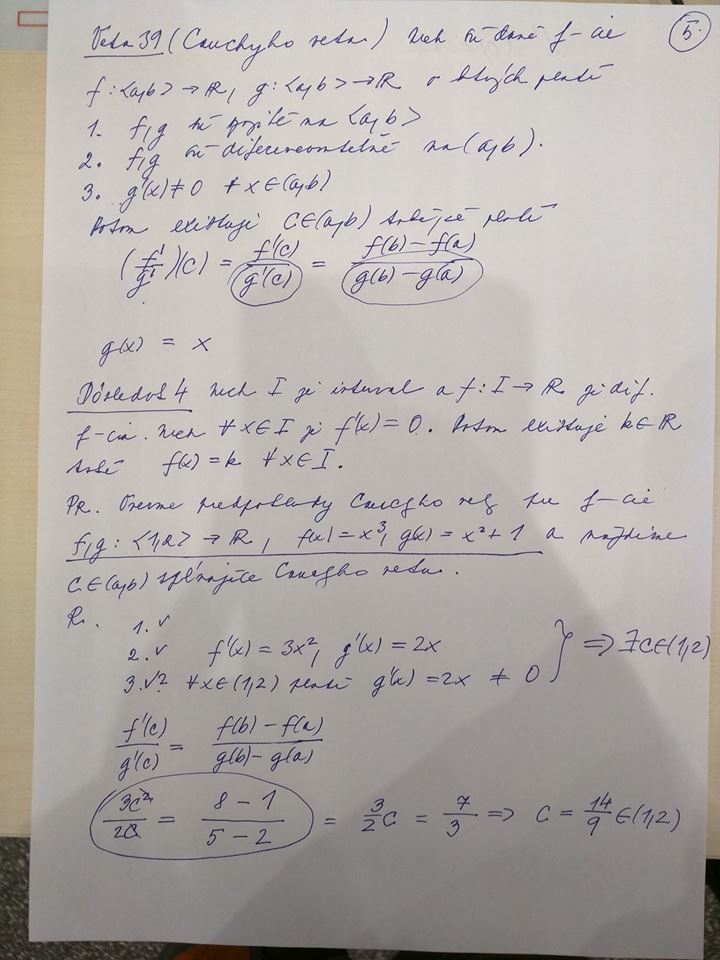 5.
Veta 39 (Cauchyho veta) Nech sú dané f-cie
f: <a,b> → R, g: <a,b> → R o ktorých platí
1. f,g sú spojité na <a,b>
2. f,g sú diferencovateľné na (a,b).
3. g'(x) ≠ 0 ∀x∈(a,b)
Potom existuje C∈(a,b) také, že platí
(f'/g')(C) = f'(c)/g'(c) = (f(b) – f(a))/(g(b) – g(a))
g(x) = x
Dôsledok 4 Nech I je interval a f: I → R je dif.
f-cia. Nech ∀x∈I je f'(x) = 0. Potom existuje k∈R
také f(x) = k ∀x∈I.
Pr. Overme predpoklady Caucyho vety pre f-cie
f,g: <1,2> → R, f(x) = x³, g(x) = x² + 1 a nájdime
C∈(a,b) spĺňajúce Caucyho vetu.
R.
1. ✓
2. ✓ f'(x) = 3x², g'(x) = 2x
3. ✓? ∀x∈(1,2) platí g'(x) = 2x ≠ 0 } ⇒ ∃C∈(1,2)
f'(c)/g'(c) = (f(b) – f(a))/(g(b) – g(a))
3c²/2c = (8 – 1)/(5 – 2) = 3/2 C = 7/3 ⇒ C = 14/9 ∈(1,2)